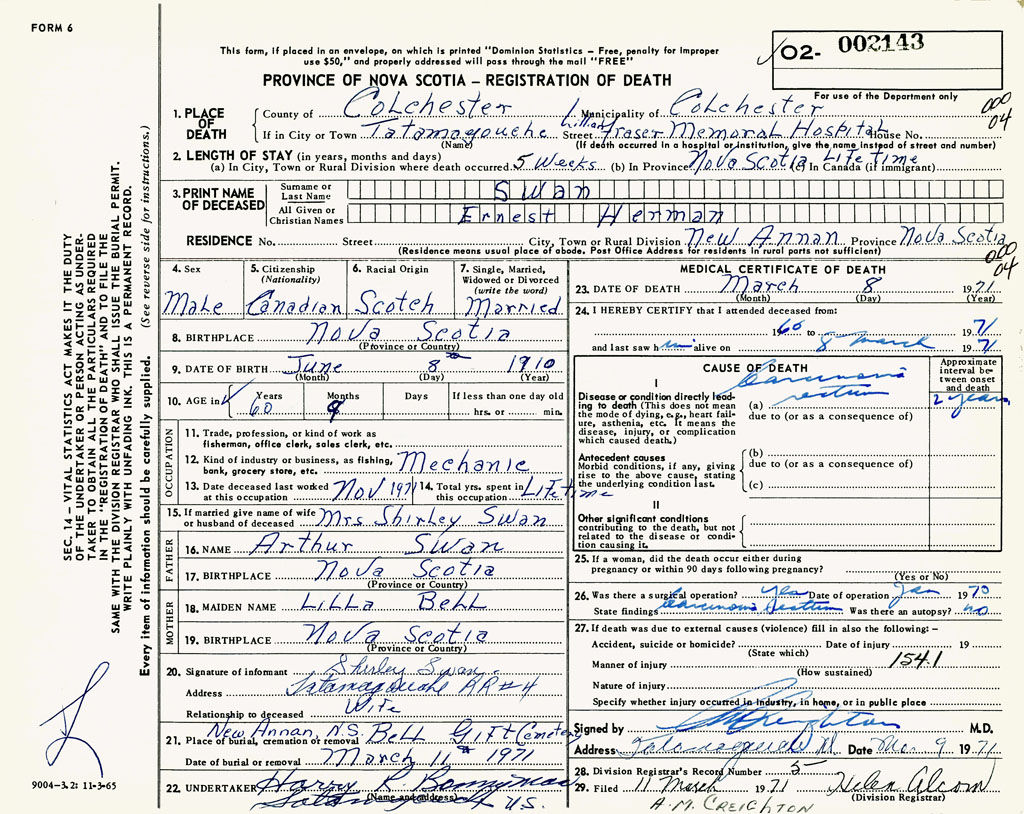 FORM 6
This form, if placed in an envelope, on which is printed "Dominion Statistics – Free, penalty for improper
use $50," and properly addressed will pass through the mail "FREE"
O2- 002143
PROVINCE OF NOVA SCOTIA – REGISTRATION OF DEATH
For use of the Department only
1. PLACE OF DEATH
County of Colchester Municipality of Colchester
000 04
If in City or Town Tatamagouche Street Lillian Fraser Memoral Hospital House No.
(Name) (If death occurred in a hospital or institution, give the name instead of street and number)
2. LENGTH OF STAY (in years, months and days)
(a) In City, Town or Rural Division where death occurred 5 Weeks (b) In Province Nova Scotia (c) In Canada (if immigrant) Life time
3. PRINT NAME OF DECEASED
Surname or Last Name Swan
All Given or Christian Names Ernest Herman
RESIDENCE No. Street City, Town or Rural Division New Annan Province Nova Scotia
(Residence means usual place of abode. Post Office Address for residents in rural parts not sufficient)
000 04
4. Sex Male
5. Citizenship (Nationality) Canadian
6. Racial Origin Scotch
7. Single, Married, Widowed or Divorced (write the word) Married
8. BIRTHPLACE Nova Scotia
(Province or Country)
9. DATE OF BIRTH June 8 1910
(Month) (Day) (Year)
10. AGE in Years 60 Months 9 Days If less than one day old hrs. or min.
OCCUPATION
11. Trade, profession, or kind of work as
fisherman, office clerk, sales clerk, etc.
12. Kind of industry or business, as fishing,
bank, grocery store, etc. Mechanic
13. Date deceased last worked at this occupation Nov 1971
14. Total yrs. spent in this occupation Life time
15. If married give name of wife
or husband of deceased Mrs Shirley Swan
FATHER
16. NAME Arthur Swan
17. BIRTHPLACE Nova Scotia
(Province or Country)
MOTHER
18. MAIDEN NAME Lilla Bell
19. BIRTHPLACE Nova Scotia
(Province or Country)
20. Signature of informant Shirley Swan
Address Tatamagouche RR#4
Relationship to deceased Wife
21. Place of burial, cremation or removal New Annan, N.S. Bell Gift Cemetery
Date of burial or removal March 11 1971
22. UNDERTAKER Harry R
(Name and address)
MEDICAL CERTIFICATE OF DEATH
23. DATE OF DEATH March 8 1971
(Month) (Day) (Year)
24. I HEREBY CERTIFY that I attended deceased from:
1960 to 1971
and last saw him alive on 8 March 1971
CAUSE OF DEATH
Approximate interval between onset and death
I
Disease or condition directly leading
to death (This does not mean
the mode of dying, e.g., heart failure,
asthenia, etc. It means the
disease, injury, or complication
which caused death.)
(a) Carcinoma rectum 2 years
due to (or as a consequence of)
Antecedent causes
Morbid conditions, if any, giving
rise to the above cause, stating
the underlying condition last.
(b)
due to (or as a consequence of)
(c)
II
Other significant conditions
contributing to the death, but not
related to the disease or condition
causing it.
25. If a woman, did the death occur either during
pregnancy or within 90 days following pregnancy?
(Yes or No)
26. Was there a surgical operation? yes Date of operation Jan 1970
State findings Carcinoma Rectum Was there an autopsy? no
27. If death was due to external causes (violence) fill in also the following: –
Accident, suicide or homicide? Date of injury 19
(State which)
Manner of injury 1541
(How sustained)
Nature of injury
Specify whether injury occurred in industry, in home, or in public place
Signed by Creighton M.D.
Address Tatamagouche Date Mar 9 1971
28. Division Registrar's Record Number 5
29. Filed 11 March 1971 Helen Alcorn
(Division Registrar)
A.M. CREIGHTON
SEC. 14 – VITAL STATISTICS ACT MAKES IT THE DUTY
OF THE UNDERTAKER OR PERSON ACTING AS UNDERTAKER
TO OBTAIN ALL THE PARTICULARS REQUIRED
IN THE "REGISTRATION OF DEATH" AND TO FILE THE
SAME WITH THE DIVISION REGISTRAR WHO SHALL ISSUE THE BURIAL PERMIT.
WRITE PLAINLY WITH UNFADING INK. THIS IS A PERMANENT RECORD.
Every item of information should be carefully supplied. (See reverse side for instructions.)
9004–3.2: 11-3-65